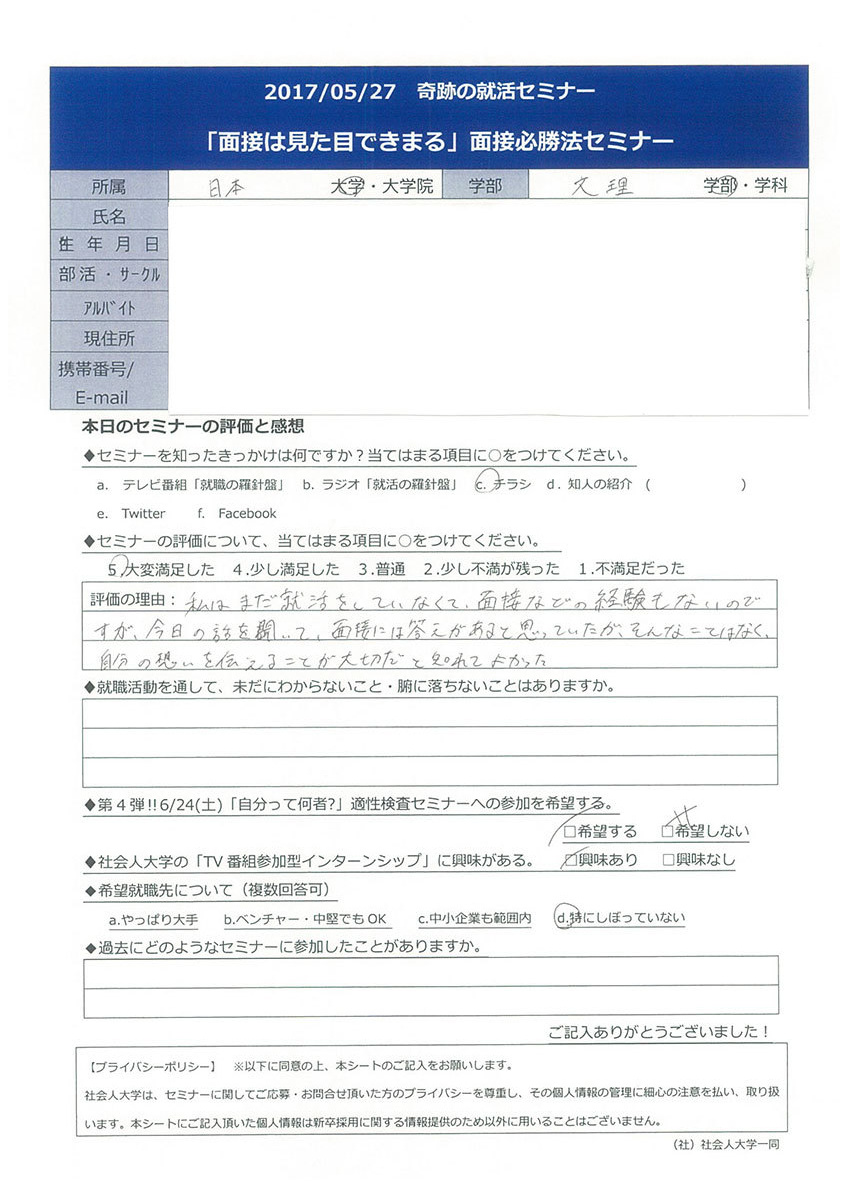 2017/05/27 奇跡の就活セミナー
「面接は見た目できまる」面接必勝法セミナー
所属 日本 大学・大学院 学部 文理 学部・学科
氏名
生年月日
部活・サークル
アルバイト
現住所
携帯番号/
E-mail
本日のセミナーの評価と感想
◆セミナーを知ったきっかけは何ですか？当てはまる項目に○をつけてください。
a. テレビ番組「就職の羅針盤」 b. ラジオ「就活の羅針盤」 c. チラシ d. 知人の紹介 ( )
e. Twitter f. Facebook
◆セミナーの評価について、当てはまる項目に○をつけてください。
5.大変満足した 4.少し満足した 3.普通 2.少し不満が残った 1.不満足だった
評価の理由：私はまだ就活をしていなくて、面接などの経験もないので
すが、今日の話を聞いて、面接には答えがあると思っていたが、そんなことはなく、
自分の想いを伝えることが大切だと知れてよかった
◆就職活動を通して、未だにわからないこと・腑に落ちないことはありますか。
◆第４弾!!6/24(土)「自分って何者?」適性検査セミナーへの参加を希望する。
□希望する □希望しない
◆社会人大学の「TV番組参加型インターンシップ」に興味がある。 □興味あり □興味なし
◆希望就職先について（複数回答可）
a.やっぱり大手 b.ベンチャー・中堅でもOK c.中小企業も範囲内 d.特にしぼっていない
◆過去にどのようなセミナーに参加したことがありますか。
ご記入ありがとうございました！
【プライバシーポリシー】 ※以下に同意の上、本シートのご記入をお願いします。
社会人大学は、セミナーに関してご応募・お問合せ頂いた方のプライバシーを尊重し、その個人情報の管理に細心の注意を払い、取り扱
います。本シートにご記入頂いた個人情報は新卒採用に関する情報提供のため以外に用いることはございません。
（社）社会人大学一同